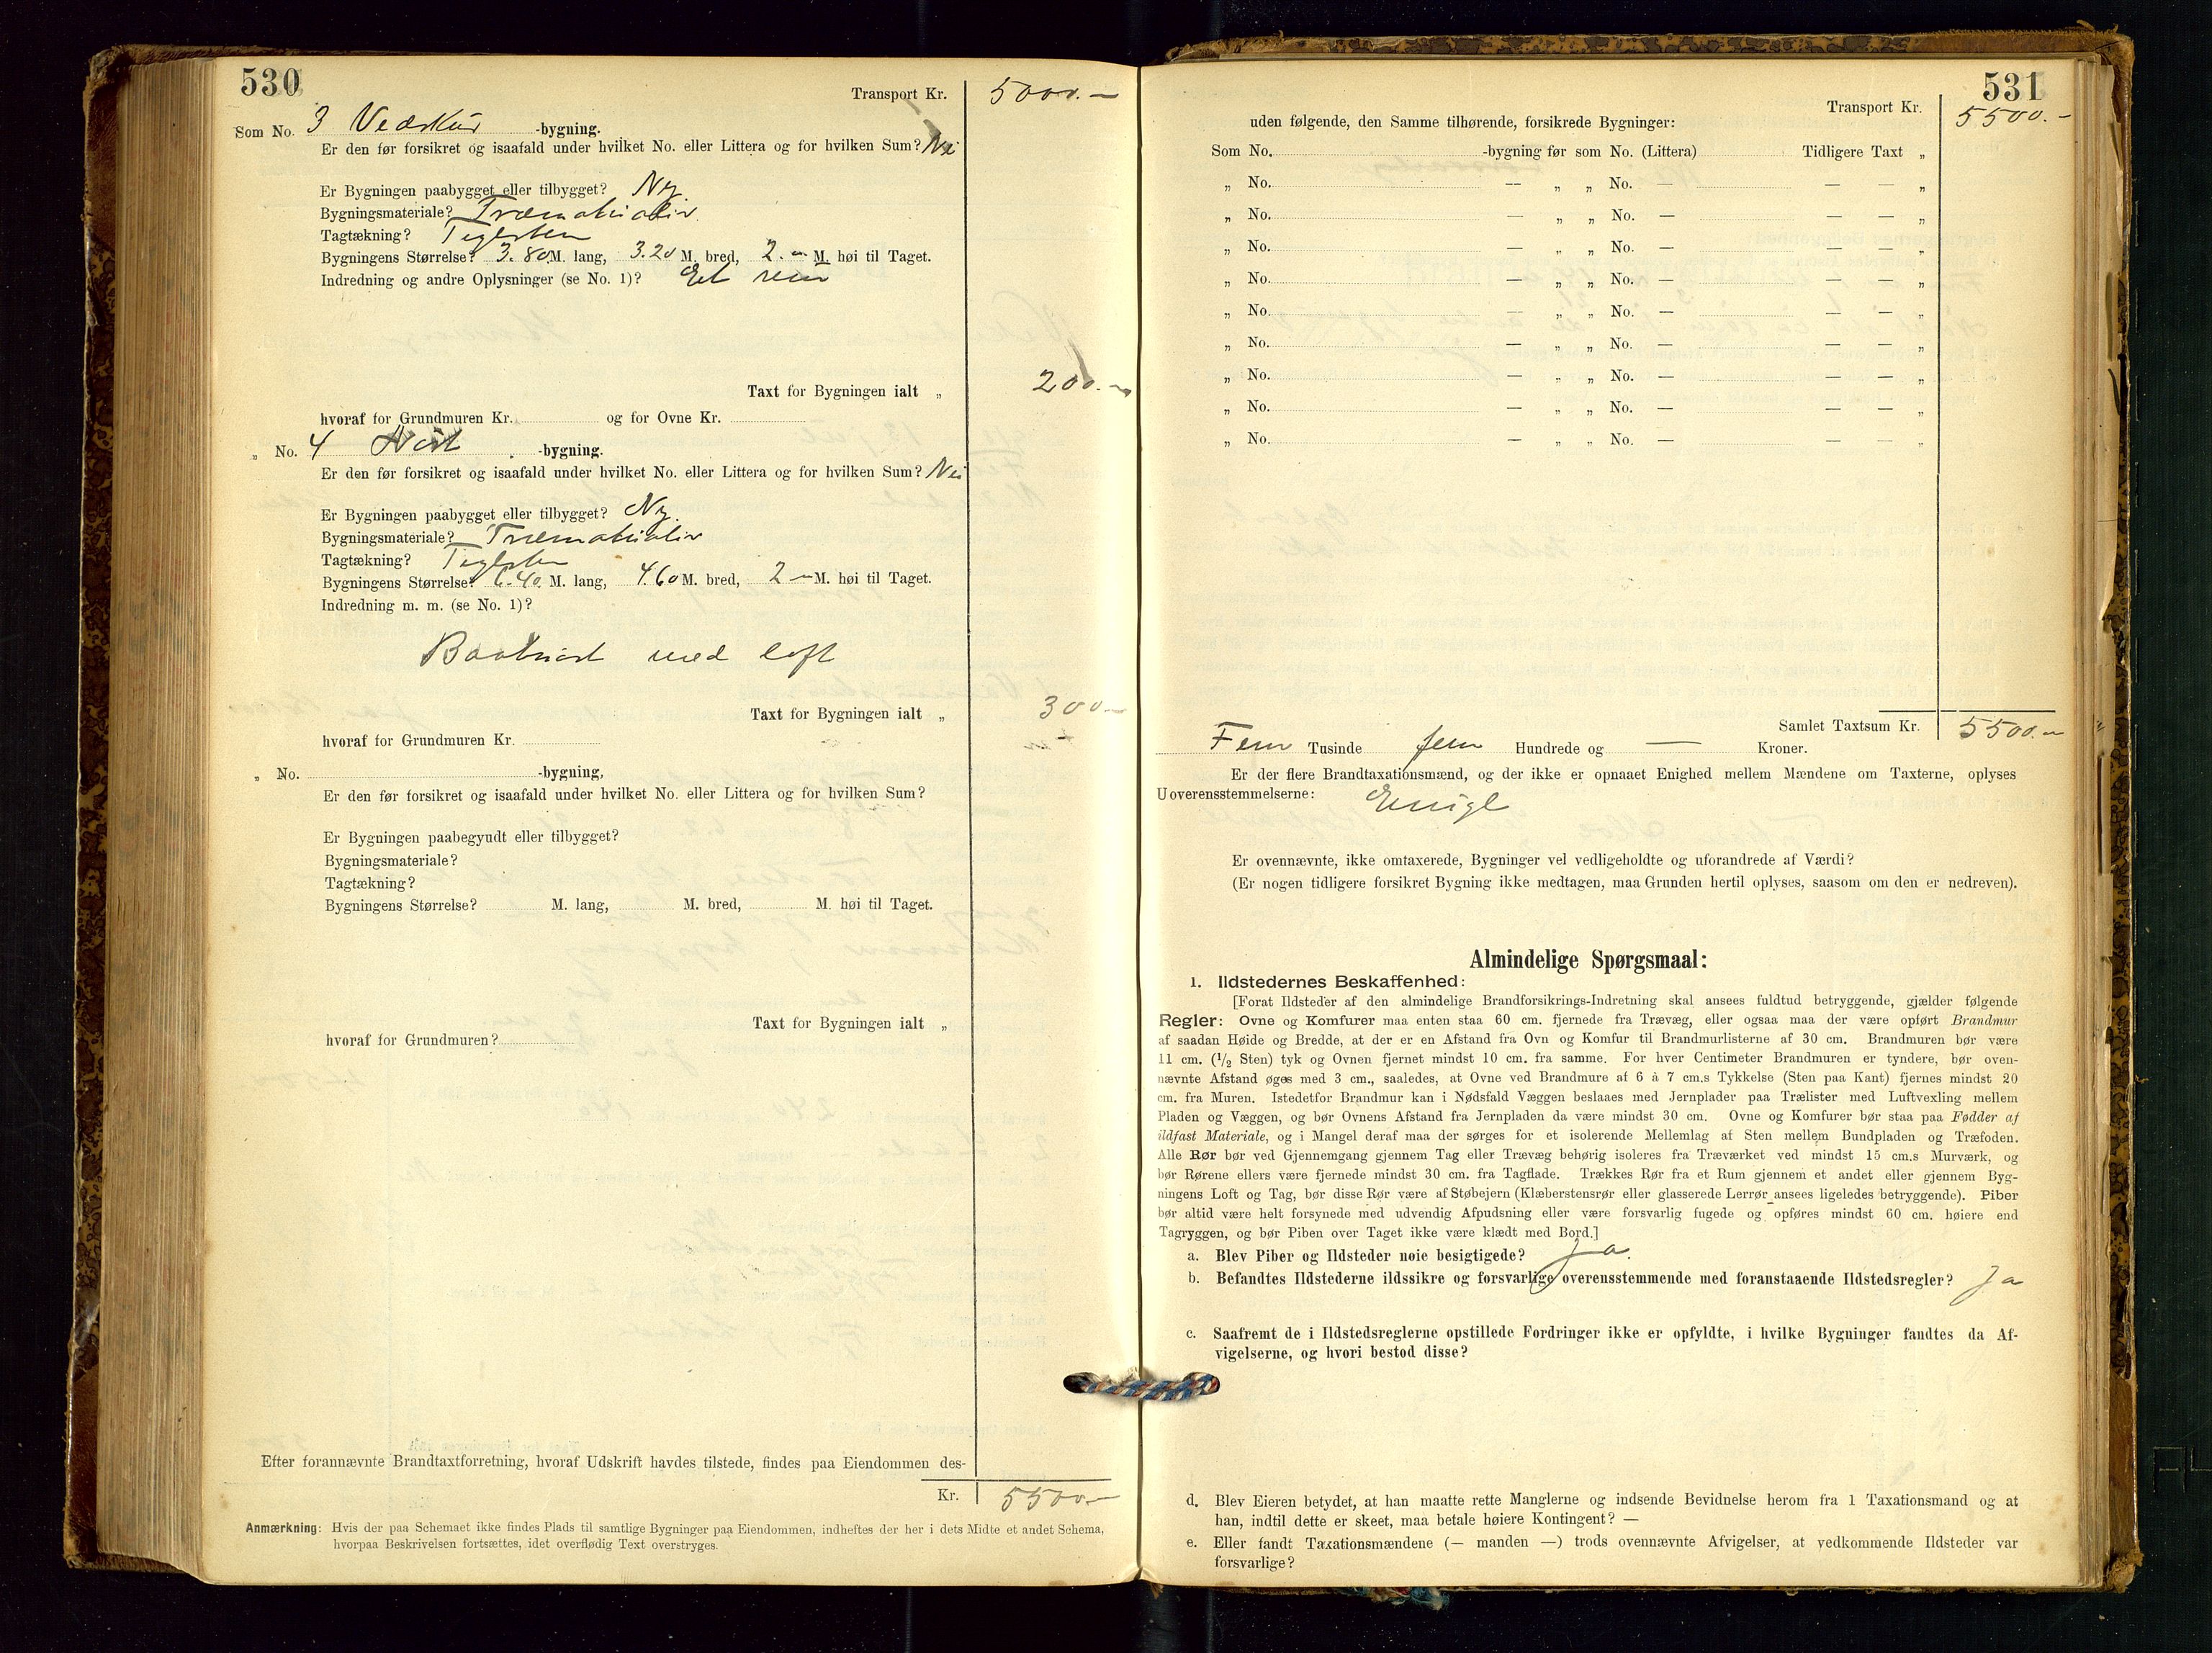 530
Transport Kr. 5000.—
Som No. 3 Vedskur -bygning.
Er den før forsikret og isaafald under hvilket No. eller Littera og for hvilken Sum? Nei
Er Bygningen paabygget eller tilbygget? Ny.
Bygningsmateriale? Træmaterialier.
Tagtækning? Teglsten
Bygningens Størrelse? 3.80 M. lang, 3.20 M. bred, 2.— M. høi til Taget.
Indredning og andre Oplysninger (se No. 1)? Et rum
Taxt for Bygningen ialt „ 200.—
hvoraf for Grundmuren Kr. og for Ovne Kr.
„ No. 4 Nøst -bygning.
Er den før forsikret og isaafald under hvilket No. eller Littera og for hvilken Sum? Nei
Er Bygningen paabygget eller tilbygget? Ny.
Bygningsmateriale? Træmaterialier
Tagtækning? Teglsten
Bygningens Størrelse? 6.40. M. lang, 4.60 M. bred, 2 — M. høi til Taget.
Indredning m. m. (se No. 1)?
Baatnøst med loft
Taxt for Bygningen ialt „ 300—
hvoraf for Grundmuren Kr.
„ No. -bygning,
Er den før forsikret og isaafald under hvilket No. eller Littera og for hvilken Sum?
Er Bygningen paabegyndt eller tilbygget?
Bygningsmateriale?
Tagtækning?
Bygningens Størrelse? M. lang, M. bred, M. høi til Taget.
Taxt for Bygningen ialt „
hvoraf for Grundmuren?
Efter forannævnte Brandtaxtforretning, hvoraf Udskrift havdes tilstede, findes paa Eiendommen des-
Kr. 5500—
Anmærkning: Hvis der paa Schemaet ikke findes Plads til samtlige Bygninger paa Eiendommen, indheftes der her i dets Midte et andet Schema,
hvorpaa Beskrivelsen fortsættes, idet overflødig Text overstryges.
531
Transport Kr. 5500.—
uden følgende, den Samme tilhørende, forsikrede Bygninger:
Som No. -bygning før som No. (Littera) Tidligere Taxt „
„ No. — „ „ No. — — — „
„ No. — „ „ No. — — — „
„ No. — „ „ No. — — — „
„ No. — „ „ No. — — — „
„ No. — „ „ No. — — — „
„ No. — „ „ No. — — — „
„ No. — „ „ No. — — — „
„ No. — „ „ No. — — — „
„ No. — „ „ No. — — — „
Samlet Taxtsum Kr. 5500.—
Fem Tusinde fem Hundrede og — Kroner.
Er der flere Brandtaxationsmænd, og der ikke er opnaaet Enighed mellem Mændene om Taxterne, oplyses
Uoverensstemmelserne: Enigt
Er ovennævnte, ikke omtaxerede, Bygninger vel vedligeholdte og uforandrede af Værdi?
(Er nogen tidligere forsikret Bygning ikke medtagen, maa Grunden hertil oplyses, saasom om den er nedreven).
Almindelige Spørgsmaal:
1. Ildstedernes Beskaffenhed:
[Forat Ildsteder af den almindelige Brandforsikrings-Indretning skal ansees fuldtud betryggende, gjælder følgende
Regler: Ovne og Komfurer maa enten staa 60 cm. fjernede fra Trævæg, eller ogsaa maa der være opført Brandmur
af saadan Høide og Bredde, at der er en Afstand fra Ovn og Komfur til Brandmurlisterne af 30 cm. Brandmuren bør være
11 cm. (1/2 Sten) tyk og Ovnen fjernet mindst 10 cm. fra samme. For hver Centimeter Brandmuren er tyndere, bør oven-
nævnte Afstand øges med 3 cm., saaledes, at Ovne ved Brandmure af 6 à 7 cm.s Tykkelse (Sten paa Kant) fjernes mindst 20
cm. fra Muren. Istedetfor Brandmur kan i Nødsfald Væggen beslaaes med Jernplader paa Trælister med Luftvexling mellem
Pladen og Væggen, og bør Ovnens Afstand fra Jernpladen da være mindst 30 cm. Ovne og Komfurer bør staa paa Fødder af
ildfast Materiale, og i Mangel deraf maa der sørges for et isolerende Mellemlag af Sten mellem Bundpladen og Træfoden.
Alle Rør bør ved Gjennemgang gjennem Tag eller Trævæg behørig isoleres fra Træværket ved mindst 15 cm.s Murværk, og
bør Rørene ellers være fjernede mindst 30 cm. fra Tagflade. Trækkes Rør fra et Rum gjennem et andet eller gjennem Byg-
ningens Loft og Tag, bør disse Rør være af Støbejern (Klæberstensrør eller glasserede Lerrør ansees ligeledes betryggende). Piber
bør altid være helt forsynede med udvendig Afpudsning eller være forsvarlig fugede og opføres mindst 60 cm. høiere end
Tagryggen, og bør Piben over Taget ikke være klædt med Bord.]
a. Blev Piber og Ildsteder nøie besigtigede? Ja.
b. Befandtes Ildstederne ildssikre og forsvarlige overensstemmende med foranstaaende Ildstedsregler? Ja
c. Saafremt de i Ildstedsreglerne opstillede Fordringer ikke er opfyldte, i hvilke Bygninger fandtes da Af-
vigelserne, og hvori bestod disse?
d. Blev Eieren betydet, at han maatte rette Manglerne og indsende Bevidnelse herom fra 1 Taxationsmand og at
han, indtil dette er skeet, maa betale høiere Kontingent? —
e. Eller fandt Taxationsmændene (— manden —) trods ovennævnte Afvigelser, at vedkommende Ildsteder var
forsvarlige?